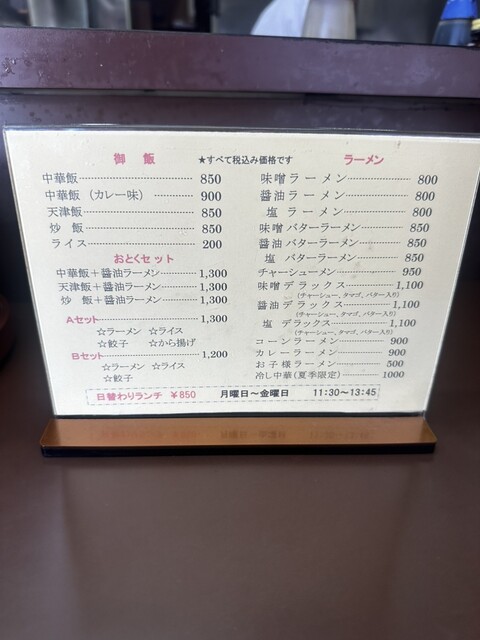 御 飯 ★すべて税込み価格です
中華飯 850
中華飯（カレー味） 900
天津飯 850
炒 飯 850
ライス 200
おとくセット
中華飯＋醤油ラーメン 1,300
天津飯＋醤油ラーメン 1,300
炒 飯＋醤油ラーメン 1,300
Aセット 1,300
☆ラーメン ☆ライス
☆餃子 ☆から揚げ
Bセット 1,200
☆ラーメン ☆ライス
☆餃子
ラーメン
味噌ラーメン 800
醤油ラーメン 800
塩 ラーメン 800
味噌バターラーメン 850
醤油バターラーメン 850
塩 バターラーメン 850
チャーシューメン 950
味噌デラックス 1,100
（チャーシュー、タマゴ、バター入り）
醤油デラックス 1,100
（チャーシュー、タマゴ、バター入り）
塩 デラックス 1,100
（チャーシュー、タマゴ、バター入り）
コーンラーメン 900
カレーラーメン 900
お子様ラーメン 500
冷し中華（夏季限定） 1000
日替わりランチ ￥850 月曜日～金曜日 11:30～13:45